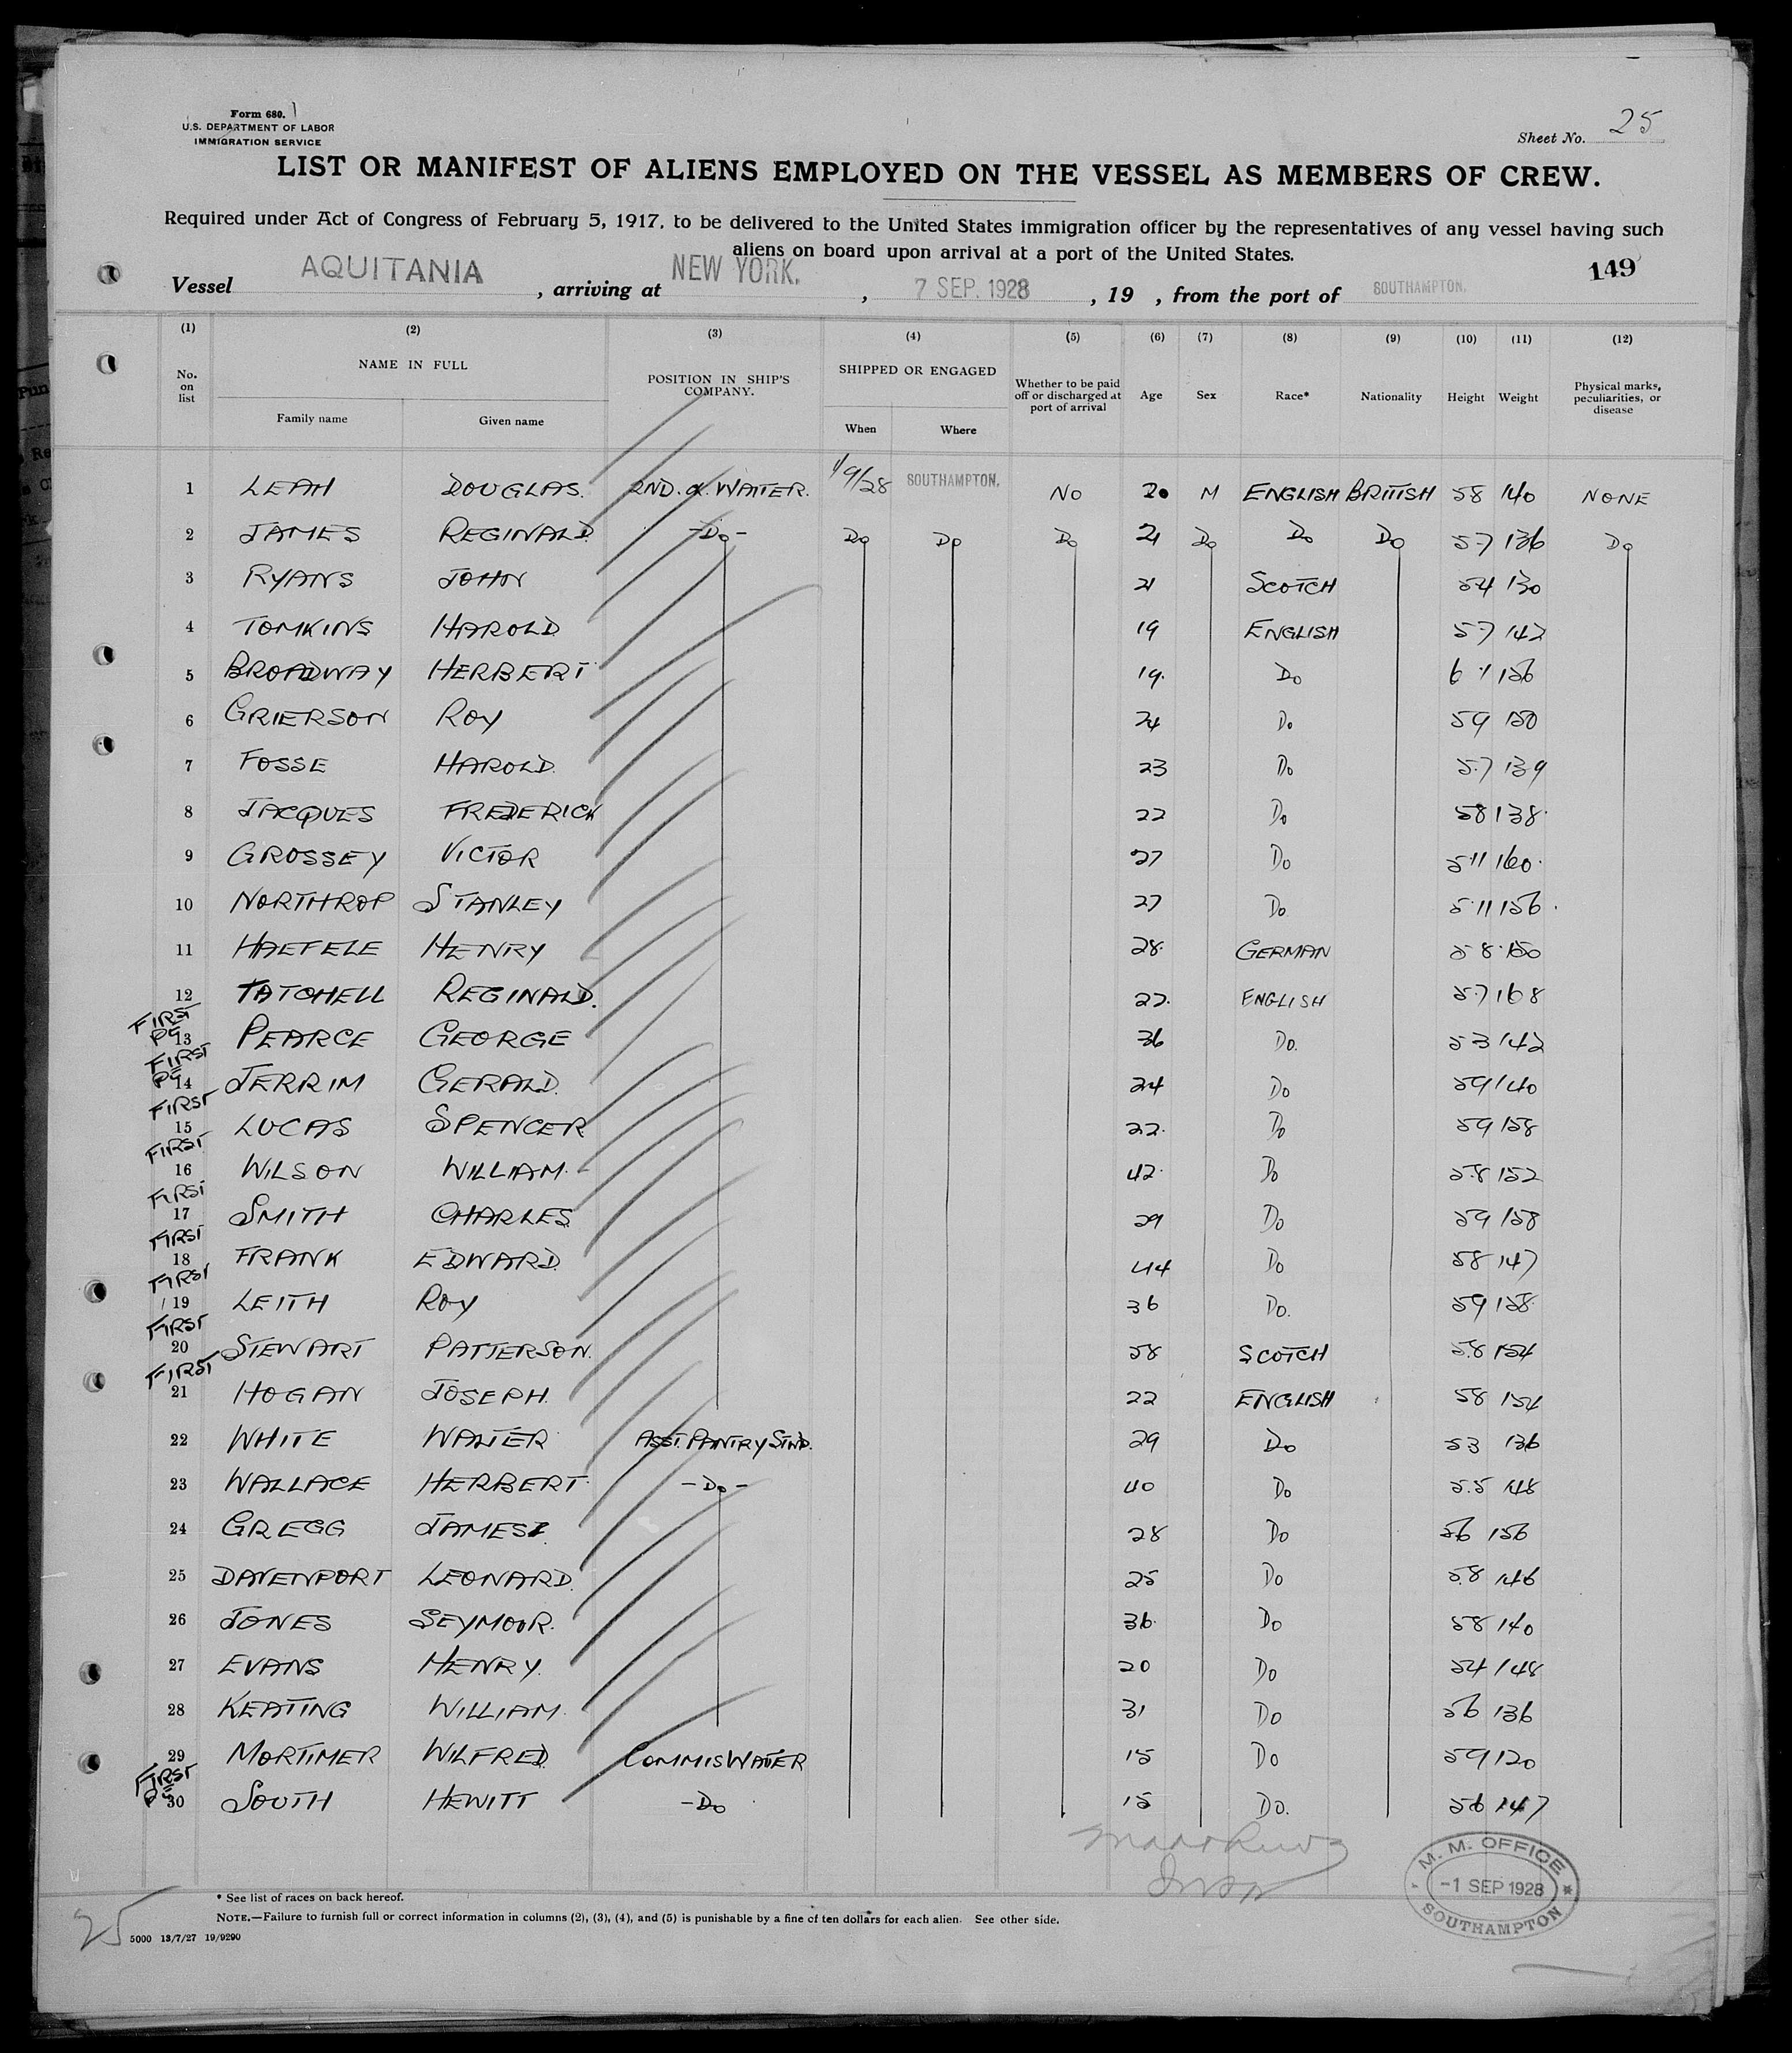 Form 680.
U.S. DEPARTMENT OF LABOR
IMMIGRATION SERVICE
Sheet No. 25
LIST OR MANIFEST OF ALIENS EMPLOYED ON THE VESSEL AS MEMBERS OF CREW.
Required under Act of Congress of February 5, 1917, to be delivered to the United States immigration officer by the representatives of any vessel having such
aliens on board upon arrival at a port of the United States.
149
Vessel AQUITANIA, arriving at NEW YORK., 7 SEP. 1928, 19 , from the port of SOUTHAMPTON.
(1) (2) (3) (4) (5) (6) (7) (8) (9) (10) (11) (12)
No. on list NAME IN FULL POSITION IN SHIP'S COMPANY. SHIPPED OR ENGAGED Whether to be paid off or discharged at port of arrival Age Sex Race* Nationality Height Weight Physical marks, peculiarities, or disease
Family name Given name When Where
1 LEAH DOUGLAS. 2ND. WAITER. 1/9/28 SOUTHAMPTON. NO 20 M ENGLISH BRITISH 58 140 NONE
2 JAMES REGINALD. -Do- Do Do Do 21 Do Do Do 5.7 136 Do
3 RYANS JOHN 21 SCOTCH 54 130
4 TOMKINS HAROLD. 19 ENGLISH 5.7 142
5 BROADWAY HERBERT 19. Do 6.1 156
6 GRIERSON ROY 24 Do 59 150
7 FOSSE HAROLD. 23 Do 5.7 139
8 JACQUES FREDERICK 22 Do 58 138.
9 GROSSEY VICTOR 27 Do 5.11 160.
10 NORTHROP STANLEY 27 Do 5.11 156.
11 HAEFELE HENRY 28. GERMAN 58. 150
12 TATCHELL REGINALD. 27. ENGLISH 5.7 168
FIRST
13 PEARCE GEORGE 36 Do. 53 142
FIRST
14 JERRIM GERALD. 24 Do 59 140
FIRST
15 LUCAS SPENCER 22. Do 59 158
FIRST
16 WILSON WILLIAM. 42. Do 5.8 152
FIRST
17 SMITH CHARLES 29 Do 59 158
FIRST
18 FRANK EDWARD. 44 Do 58 147
FIRST
19 LEITH ROY 36 Do. 59 158.
FIRST
20 STEWART PATTERSON. 58 SCOTCH 5.8 154
FIRST
21 HOGAN JOSEPH. 22 ENGLISH 58 154
22 WHITE WALTER ASST. PANTRY STWD. 29 Do 53 136
23 WALLACE HERBERT. -Do- 40 Do 5.5 148
24 GREGG JAMES. 28 Do 56 156
25 DAVENPORT LEONARD. 25 Do 5.8 146
26 JONES SEYMOUR. 36. Do 58 140
27 EVANS HENRY. 20 Do 54 148
28 KEATING WILLIAM. 31 Do 56 136
29 MORTIMER WILFRED. COMMIS WAITER 15 Do 59 120
FIRST
30 SOUTH HEWITT -Do 15 Do. 56 147
M. M. OFFICE
-1 SEP 1928
SOUTHAMPTON
* See list of races on back hereof.
NOTE.—Failure to furnish full or correct information in columns (2), (3), (4), and (5) is punishable by a fine of ten dollars for each alien. See other side.
25
5000 13/7/27 19/9290